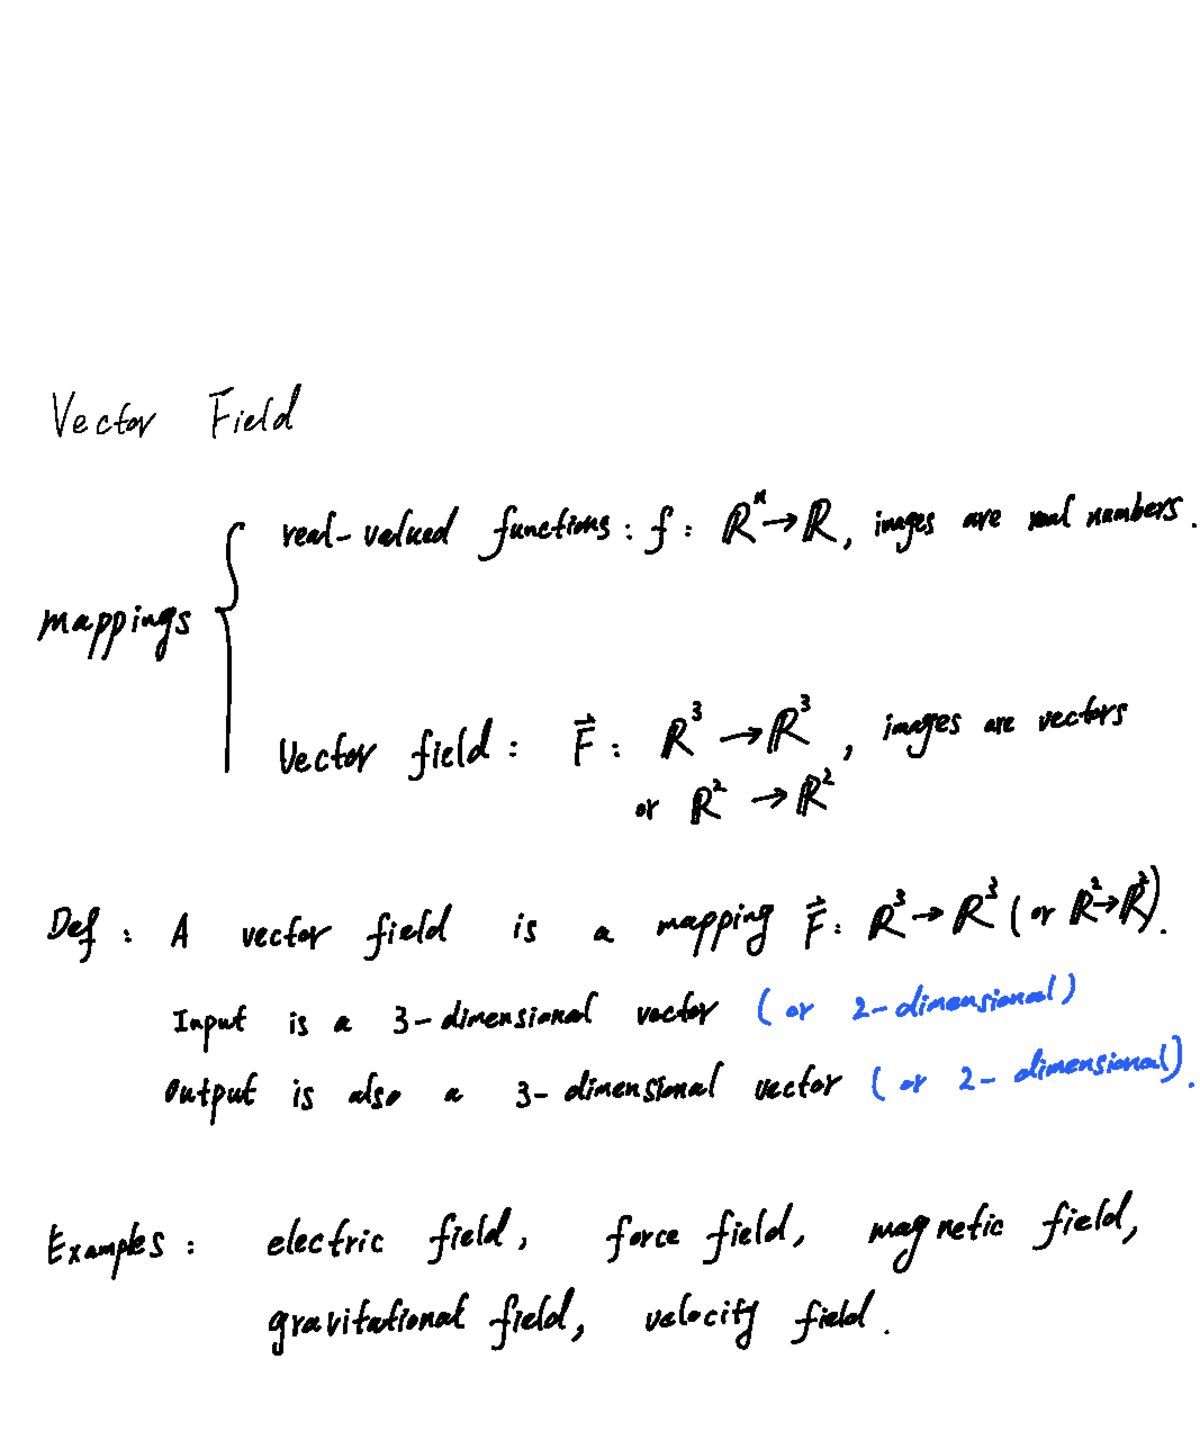 Vector Field
real-valued functions: f: ℝⁿ → ℝ, images are real numbers.
mappings
Vector field: F⃗: ℝ³ → ℝ³, images are vectors
or ℝ² → ℝ²
Def: A vector field is a mapping F⃗: ℝ³ → ℝ³ (or ℝ² → ℝ²).
Input is a 3-dimensional vector (or 2-dimensional)
Output is also a 3-dimensional vector (or 2-dimensional).
Examples: electric field, force field, magnetic field,
gravitational field, velocity field.